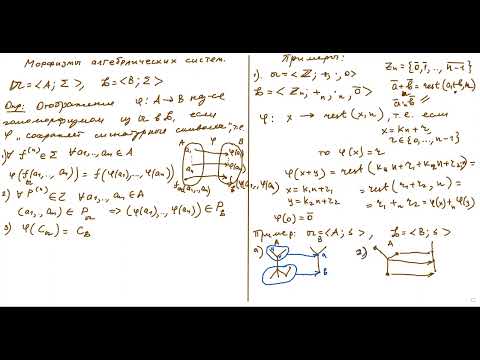 Морфизмы алгебраических систем.
𝔄 = <A; Σ>, 𝔅 = <B; Σ>
Опр: Отображение φ: A → B наз-ся
гомоморфизмом из 𝔄 в 𝔅, если
φ "сохраняет сигнатурные символы", т.е.
1) ∀ f⁽ⁿ⁾ ∈ Σ ∀ a₁,..,aₙ ∈ A
φ(f(a₁,..,aₙ)) = f(φ(a₁),..,φ(aₙ))
2) ∀ P⁽ⁿ⁾ ∈ Σ ∀ a₁,..,aₙ ∈ A
(a₁,..,aₙ) ∈ P_𝔄 => (φ(a₁),..,φ(aₙ)) ∈ P_𝔅
3) φ(C_𝔄) = C_𝔅
A φ B
a₁ φ(a₁)
aₙ φ(aₙ)
Примеры:
1). 𝔄 = <ℤ; +, ·, 0>
𝔅 = <ℤₙ; +ₙ, ·ₙ, 0̄>
ℤₙ = {0̄, 1̄, .., n-1}
ā + b̄ = rest(a+b, n)
φ: x → rest(x, n), т.е. если
x = kn + r
r ∈ {0,..,n-1}
то φ(x) = r
φ(x+y) = rest(k₁n + r₁ + k₂n + r₂, n) =
x = k₁n + r₁ = rest(r₁ + r₂, n) =
y = k₂n + r₂ = r₁ +ₙ r₂ = φ(x) +ₙ φ(y)
φ(0) = 0̄
Пример: 𝔄 = <A; ≤>, 𝔅 = <B; ≤>
a) A B
a
b
2) A B